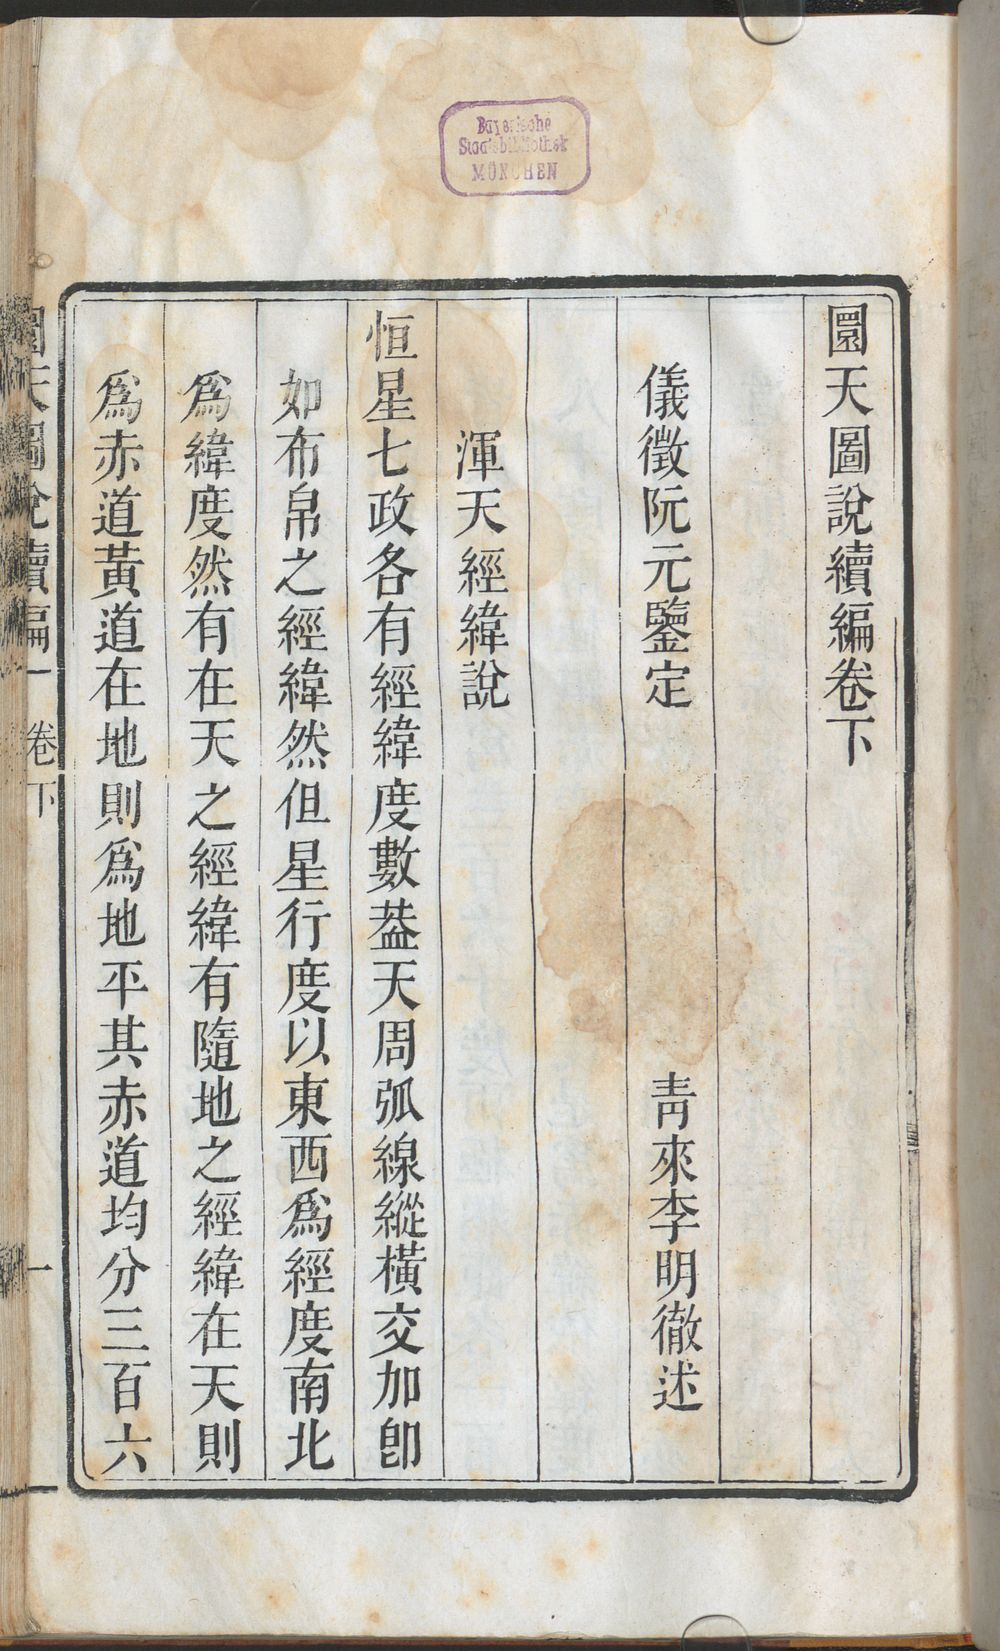 Bayerische
Staatsbibliothek
MÜNCHEN
圜天圖說續編卷下
儀徵阮元鑒定 青來李明徹述
渾天經緯說
恒星七政各有經緯度數葢天周弧線縱橫交加卽
如布帛之經緯然但星行度以東西爲經度南北
爲緯度然有在天之經緯有隨地之經緯在天則
爲赤道黃道在地則爲地平其赤道均分三百六
圜天圖說續編 卷下 一